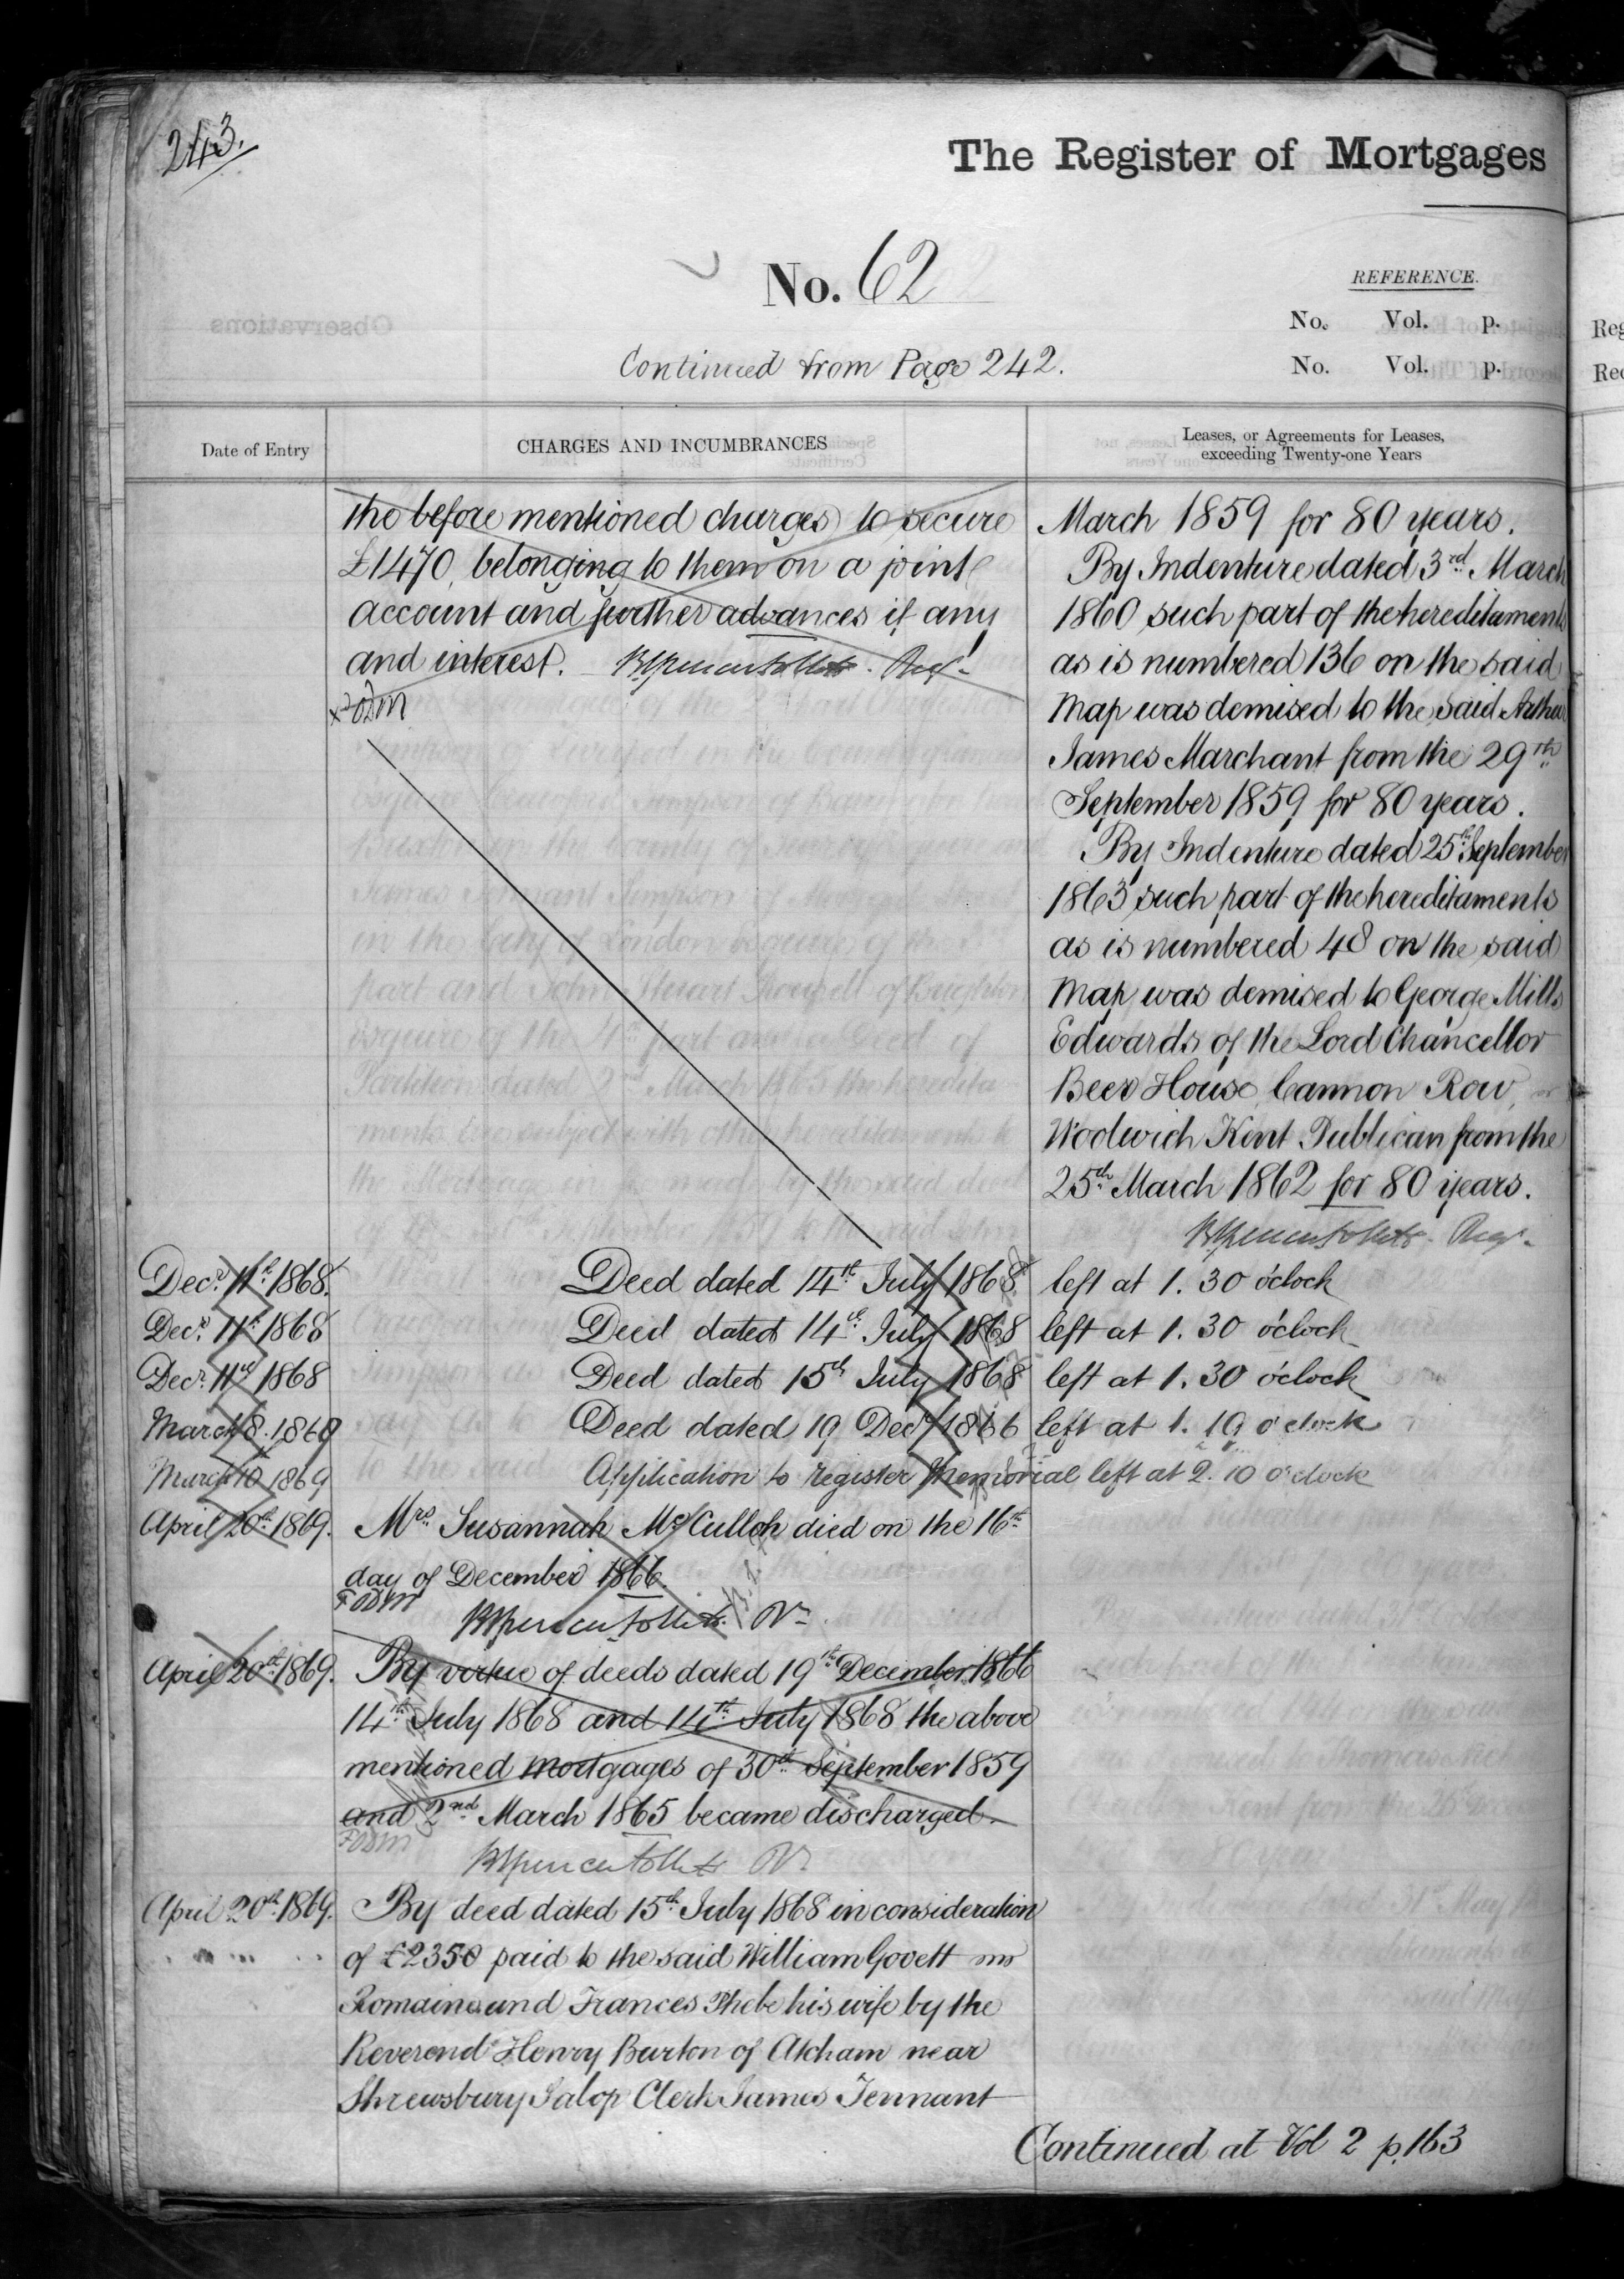 243.
The Register of Mortgages
No. 62
REFERENCE.
No. Vol. p.
No. Vol. p.
Continued from Page 242.
Date of Entry
CHARGES AND INCUMBRANCES
Leases, or Agreements for Leases,
exceeding Twenty-one Years
the before mentioned charges to secure
£1470, belonging to them on a joint
account and further advances if any
and interest.
March 1859 for 80 years.
By Indenture dated 3rd March
1860 such part of the hereditaments
as is numbered 136 on the said
Map was demised to the said Arthur
James Marchant from the 29th
September 1859 for 80 years.
By Indenture dated 25th September
1863 such part of the hereditaments
as is numbered 48 on the said
Map was demised to George Mills
Edwards of the Lord Chancellor
Beer House Cannon Row
Woolwich Kent Publican from the
25th March 1862 for 80 years.
Decr. 11th 1868. Deed dated 14th July 1868 left at 1.30 o'clock
Decr. 11th 1868 Deed dated 14th July 1868 left at 1.30 o'clock
Decr. 11th 1868 Deed dated 15th July 1868 left at 1.30 o'clock
March 8. 1869 Deed dated 19 Decr 1866 left at 1.19 o'clock
March 10 1869 Application to register Memorial left at 2.10 o'clock
April 20th 1869. Mrs. Susannah McCulloh died on the 16th
day of December 1866.
April 20th 1869. By virtue of deeds dated 19th December 1866
14th July 1868 and 14th July 1868 the above
mentioned mortgages of 30th September 1859
and 2nd March 1865 became discharged.
April 20th 1869. By deed dated 15th July 1868 in consideration
of £2350 paid to the said William Govett
Romaine and Frances Phebe his wife by the
Reverend Henry Burton of Atcham near
Shrewsbury Salop Clerk James Tennant
Continued at Vol 2 p. 163